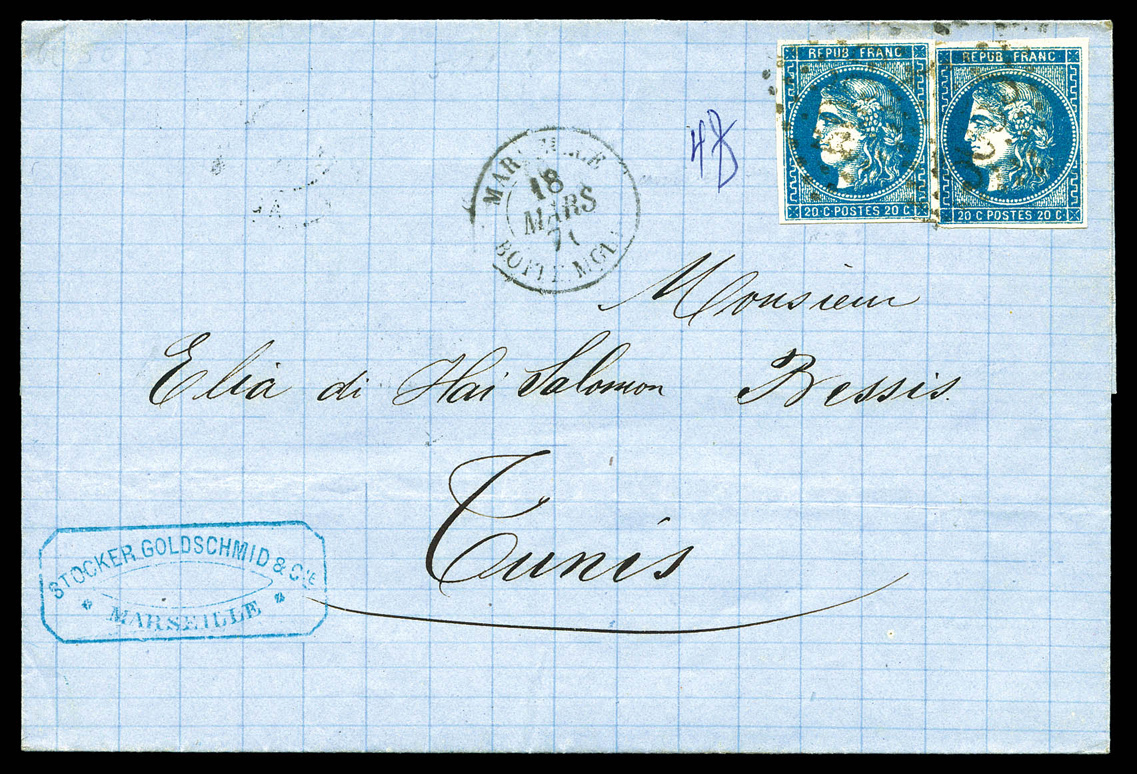 REPUB FRANC
20 C POSTES 20 C
REPUB FRANC
20 C POSTES 20 C
48
MARSEILLE
18
MARS
71
BOITE
Monsieur
Elia di Hai Salomon Bessis
Tunis
STOCKER GOLDSCHMID & CIE
MARSEILLE